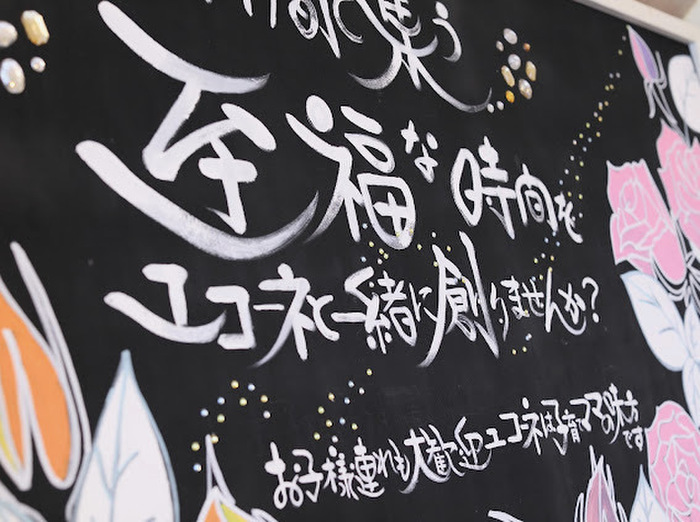 間に集う
至福な時間を
エコーネと一緒に創りませんか?
お子様連れも大歓迎エコーネは子育てママの味方です